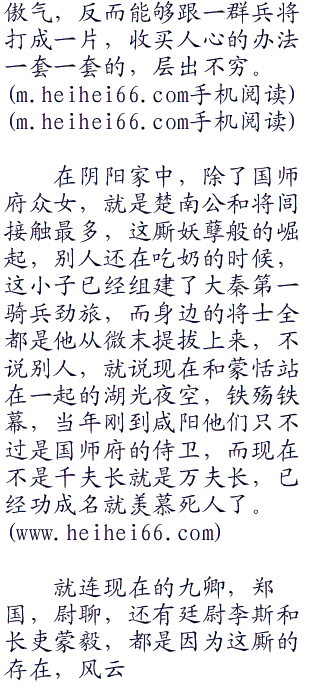 傲气，反而能够跟一群兵将
打成一片，收买人心的办法
一套一套的，层出不穷。
(m.heihei66.com手机阅读)
(m.heihei66.com手机阅读)
在阴阳家中，除了国师
府众女，就是楚南公和将闾
接触最多，这厮妖孽般的崛
起，别人还在吃奶的时候，
这小子已经组建了大秦第一
骑兵劲旅，而身边的将士全
都是他从微末提拔上来，不
说别人，就说现在和蒙恬站
在一起的湖光夜空，铁殇铁
幕，当年刚到咸阳他们只不
过是国师府的侍卫，而现在
不是千夫长就是万夫长，已
经功成名就羡慕死人了。
(www.heihei66.com)
就连现在的九卿，郑
国，尉聊，还有廷尉李斯和
长吏蒙毅，都是因为这厮的
存在，风云